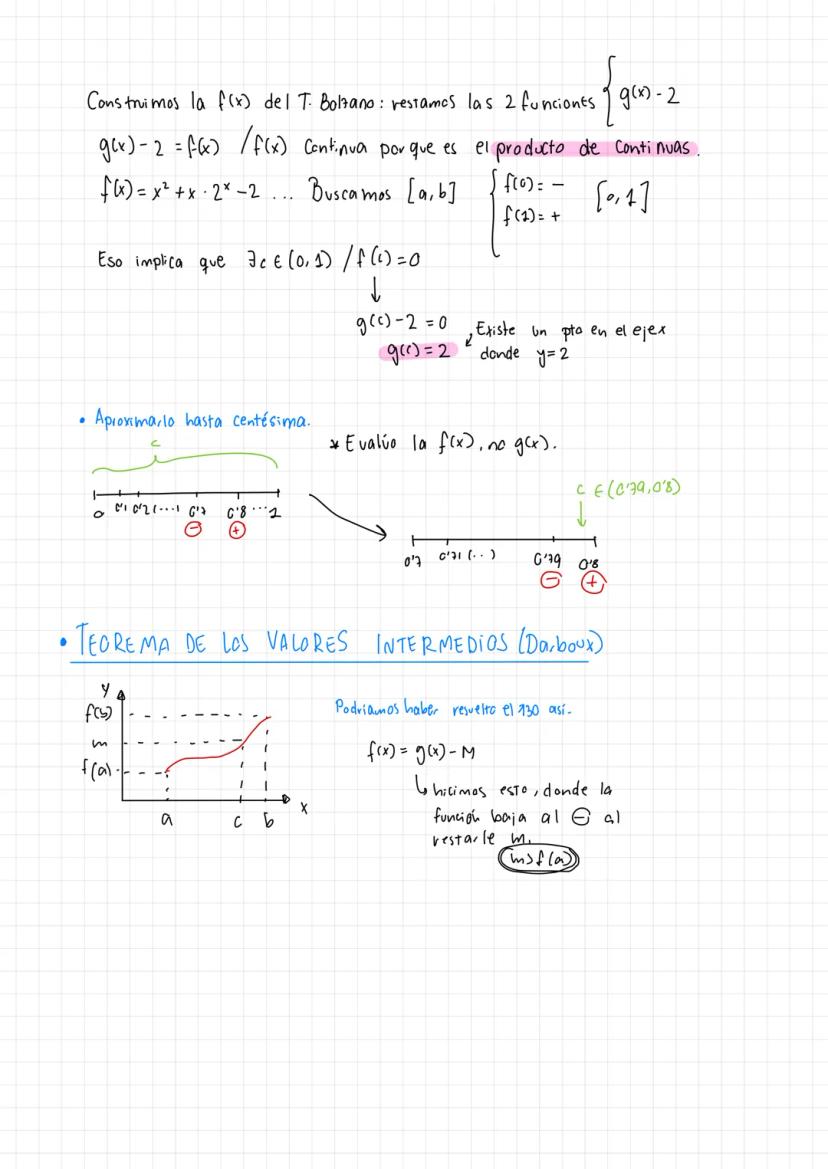 Construimos la f(x) del T. Bolzano: restamos las 2 funciones { g(x) - 2
g(x) - 2 = f(x) / f(x) Continua porque es el producto de continuas.
f(x) = x² + x · 2ˣ - 2 ... Buscamos [a, b] { f(0) = - [0, 1]
f(1) = +
Eso implica que ∃c ∈ (0, 1) / f(c) = 0
↓
g(c) - 2 = 0
g(c) = 2
Existe un pto en el eje x
donde y = 2
• Aproximarlo hasta centésima.
* Evalúo la f(x), no g(x).
c
0 0'1 0'2 (...) 0'7 0'8 ... 1
- +
c ∈ (0'79, 0'8)
0'7 0'71 (..) 0'79 0'8
- +
• TEOREMA DE LOS VALORES INTERMEDIOS (Darboux)
y
f(b)
m
f(a)
a c b x
Podríamos haber resuelto el 130 así.
f(x) = g(x) - M
↳ hicimos esto, donde la
función baja al ⊖ al
restarle m.
m > f(a)